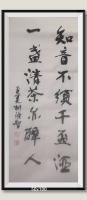 知音不须千杯酒
一盏清茶亦醉人
50x100